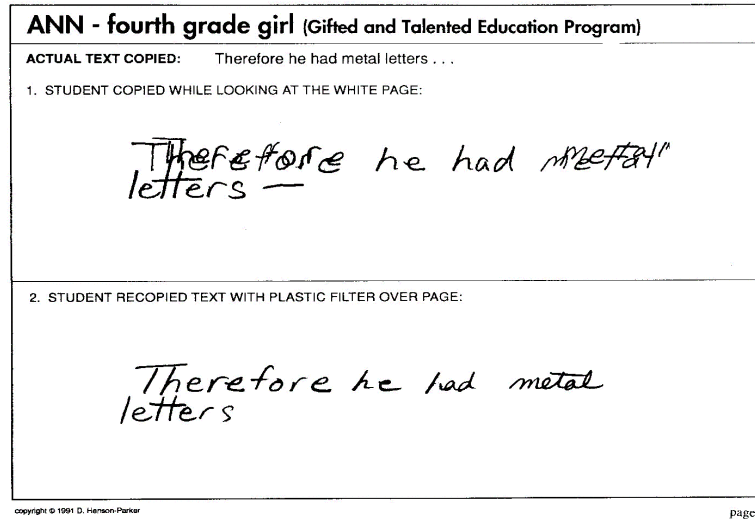 ANN - fourth grade girl (Gifted and Talented Education Program)
ACTUAL TEXT COPIED: Therefore he had metal letters . . .
1. STUDENT COPIED WHILE LOOKING AT THE WHITE PAGE:
Therefore he had metal
letters —
2. STUDENT RECOPIED TEXT WITH PLASTIC FILTER OVER PAGE:
Therefore he had metal
letters
copyright © 1991 D. Henson-Parker
page